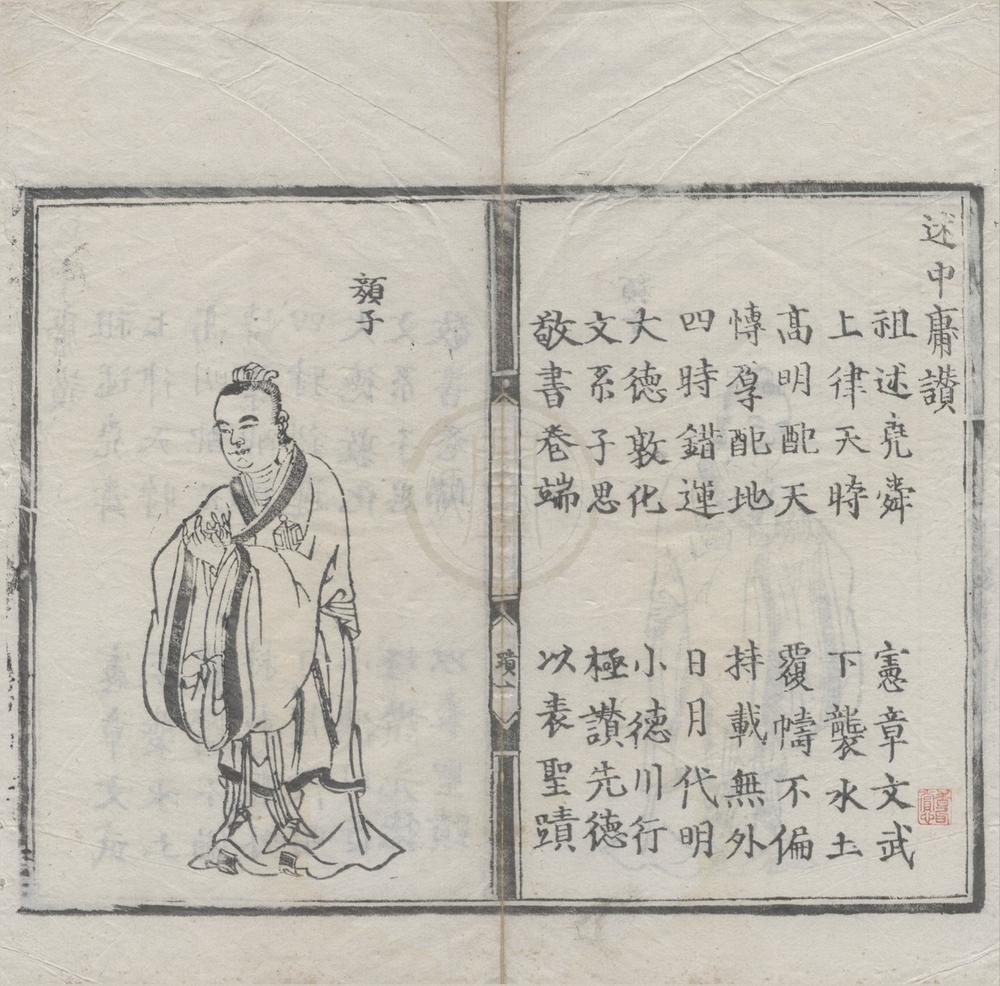 述中庸讃
祖述堯舜 憲章文武
上律天時 下襲水土
髙明配天 覆幬不偏
愽厚配地 持載無外
四時錯運 日月代明
大德敦化 小德川行
文系子思 極讃先德
敬書卷端 以表聖蹟
蹟
顏子